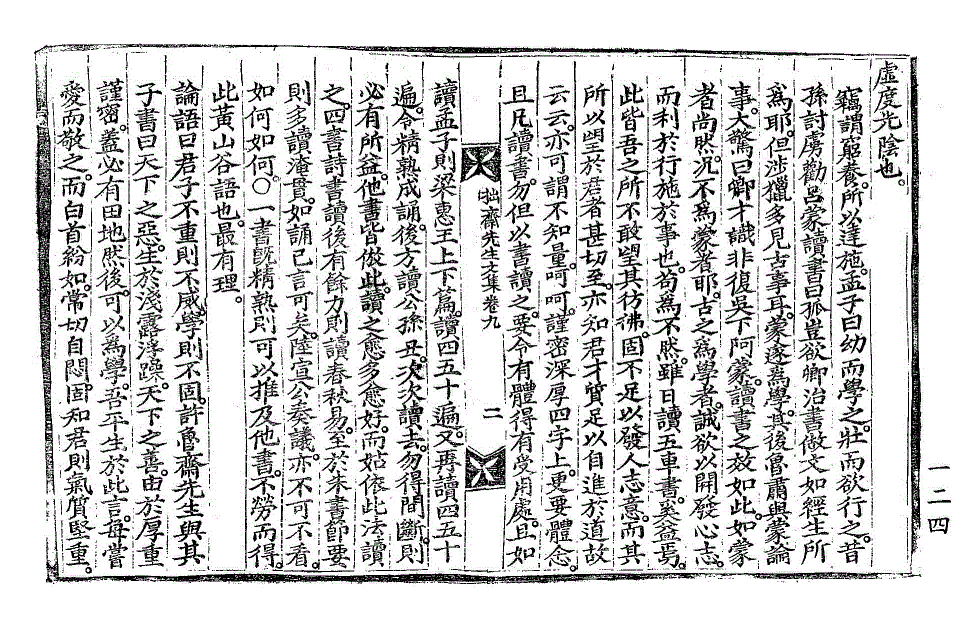 虛度光陰也。
竊謂窮養。所以達施。孟子曰幼而學之。壯而欲行之。昔
孫討虜勸呂蒙讀書曰孤豈欲卿治書做文如經生所
爲耶。但涉獵多見古事耳。蒙遂爲學。其後魯肅與蒙論
事大驚曰卿才識非復吳下阿蒙。讀書之效如此。如蒙
者尚然。况不爲蒙者耶。古之爲學者。誠欲以開發心志。
而利於行施於事也。苟爲不然。雖日讀五車書。奚益焉。
此皆吾之所不敢望其彷彿。固不足以發人志意。而其
所以望於君者甚切至。亦知君才質足以自進於道故
云云。亦可謂不知量。呵呵。謹密深厚四字上。更要體念。
且凡讀書。勿但以書讀之。要令有體得有受用處。且如
拙齋先生文集卷九
二
讀孟子則梁惠王上下篇。讀四五十遍。又再讀四五十
遍。令精熟成誦。後方讀公孫丑。次次讀去。勿得間斷。則
必有所益。他書皆倣此。讀之愈多愈好。而姑依此法讀
之。四書詩書讀後有餘力。則讀春秋易。至於朱書節要
則多讀淹貫。如誦己言可矣。陸宣公奏議。亦不可不看。
如何如何。○一書旣精熟則可以推及他書。不勞而得。
此黃山谷語也。最有理。
論語曰君子不重則不威。學則不固。許魯齋先生與其
子書曰天下之惡。生於淺露浮躁。天下之善。由於厚重
謹密。蓋必有田地然後。可以爲學。吾平生於此言。每嘗
愛而敬之。而白首紛如。常切自悶。固知君則氣質堅重。
一二四